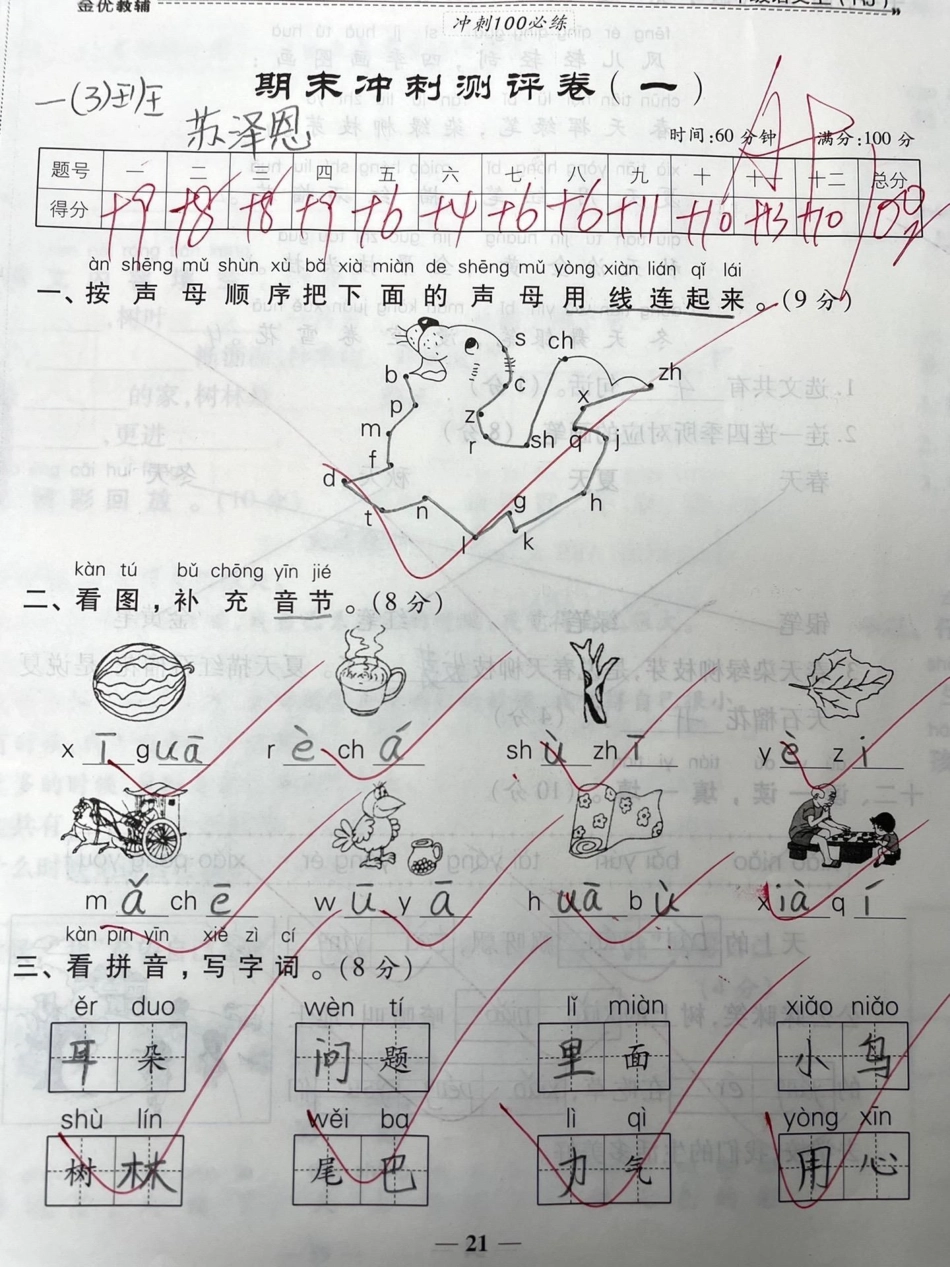 金优教辅
冲刺100必练
期末冲刺测评卷(一)
一(3)班
苏泽恩
时间:60分钟 满分:100分
题号 一 二 三 四 五 六 七 八 九 十 十一 十二 总分
得分 +9 +8 +8 +9 +6 +4 +6 +6 +11 +10 +13 +10 100
àn shēng mǔ shùn xù bǎ xià miàn de shēng mǔ yòng xiàn lián qǐ lái
一、按声母顺序把下面的声母用线连起来。(9分)
s ch
b c zh
p z x
m r sh q j
f
d
t n g h
l k
kàn tú bǔ chōng yīn jié
二、看图,补充音节。(8分)
x ī g uā r è ch á sh ù zh ī y è z i
m ǎ ch ē w ū y ā h uà b ù x ià q í
kàn pīn yīn xiě zì cí
三、看拼音,写字词。(8分)
ěr duo wèn tí lǐ miàn xiǎo niǎo
耳朵 问题 里面 小鸟
shù lín wěi ba lì qì yòng xīn
树林 尾巴 力气 用心
— 21 —